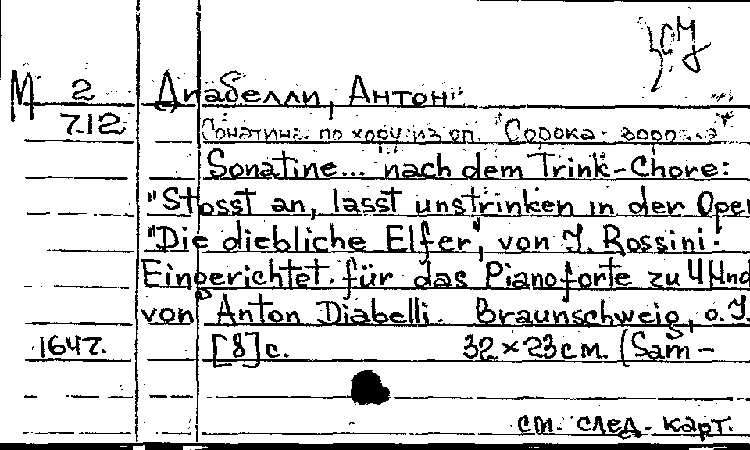 М 2 Диабелли, Антон
7.12 Сонатина по хору из оп. "Сорока-воровка"
Sonatine... nach dem Trink-Chore:
"Stosst an, lasst uns trinken in der Oper
"Die diebliche Elfer", von J. Rossini.
Eingerichtet für das Pianoforte zu 4 Hnd
von Anton Diabelli. Braunschweig, o.J.
1647. [8]с. 32×23 см. (Sam-
см. след. карт.